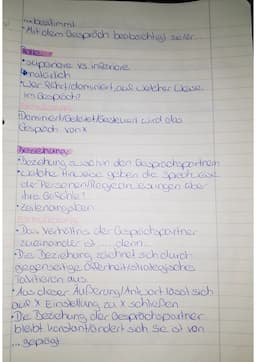 ...bestimmt
•Mit dem Gespräch beabsichtigt sie/er...
Rolle
•superiore vs. inferiore
•natürlich
•Wer führt/dominiert auf welcher Weise
im Gespräch?
Dominiert/Geleitet/Gesteuert wird das
Gespräch von X
Beziehung
•Beziehung zwischen den Gesprächspartnern
•welche Hinweise geben die Sprechweise
der Personen/Regieanweisungen über
ihre Gefühle?
•Zeilenangaben
•Das Verhältnis der Gesprächspartner
zueinander ist ... denn...
•Die Beziehung zeichnet sich durch
gegenseitige Offenheit/strategisches
Taktieren aus.
•Aus dieser Äußerung/Antwort lässt sich
auf X Einstellung zu X schließen
•Die Beziehung der Gesprächspartner
bleibt konstant/ändert sich. Sie ist von
... geprägt